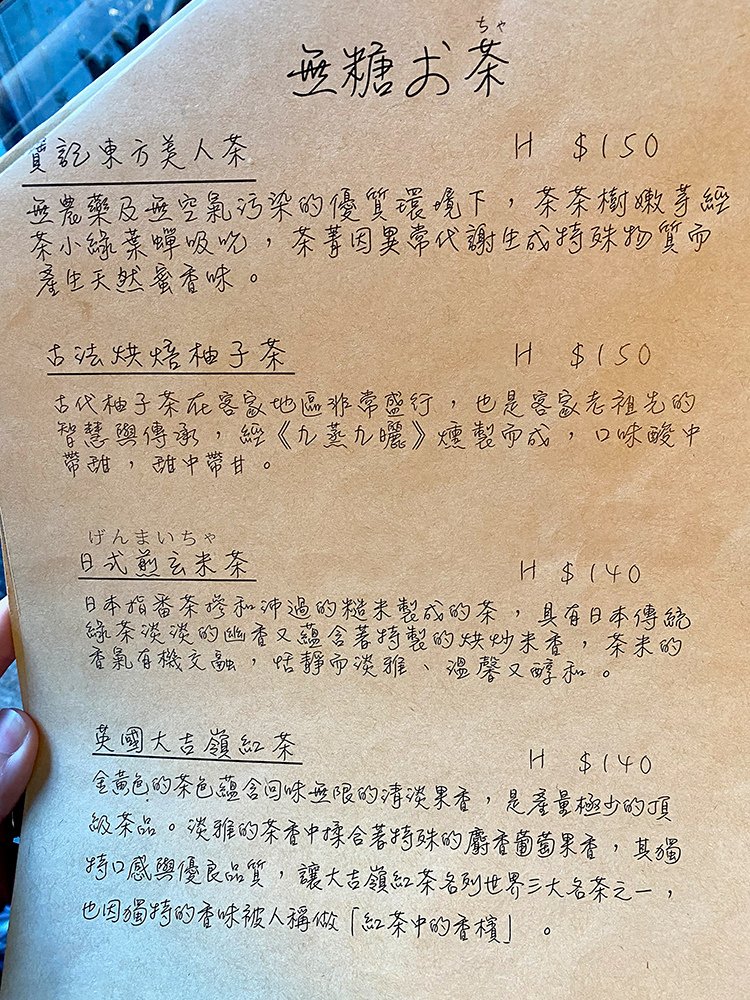 ちゃ
無糖お茶
賈記東方美人茶 H $150
無農藥及無空氣污染的優質環境下，茶茶樹嫩芽經
茶小綠葉蟬吸吮，茶菁因異常代謝生成特殊物質而
產生天然蜜香味。
古法烘焙柚子茶 H $150
古代柚子茶在客家地區非常盛行，也是客家老祖先的
智慧與傳承，經《九蒸九曬》燻製而成，口味酸中
帶甜，甜中帶甘。
げんまいちゃ
日式煎玄米茶 H $140
日本指番茶摻和沖過的糙米製成的茶，具有日本傳統
綠茶淡淡的幽香又蘊含著特製的烘炒米香，茶米的
香氣有機交融，恬靜而淡雅、溫馨又醇和。
英國大吉嶺紅茶 H $140
金黃色的茶色蘊含回味無限的清淡果香，是產量極少的頂
級茶品。淡雅的茶香中揉合著特殊的麝香葡萄果香，其獨
特口感與優良品質，讓大吉嶺紅茶名列世界三大名茶之一，
也因獨特的香味被人稱做「紅茶中的香檳」。